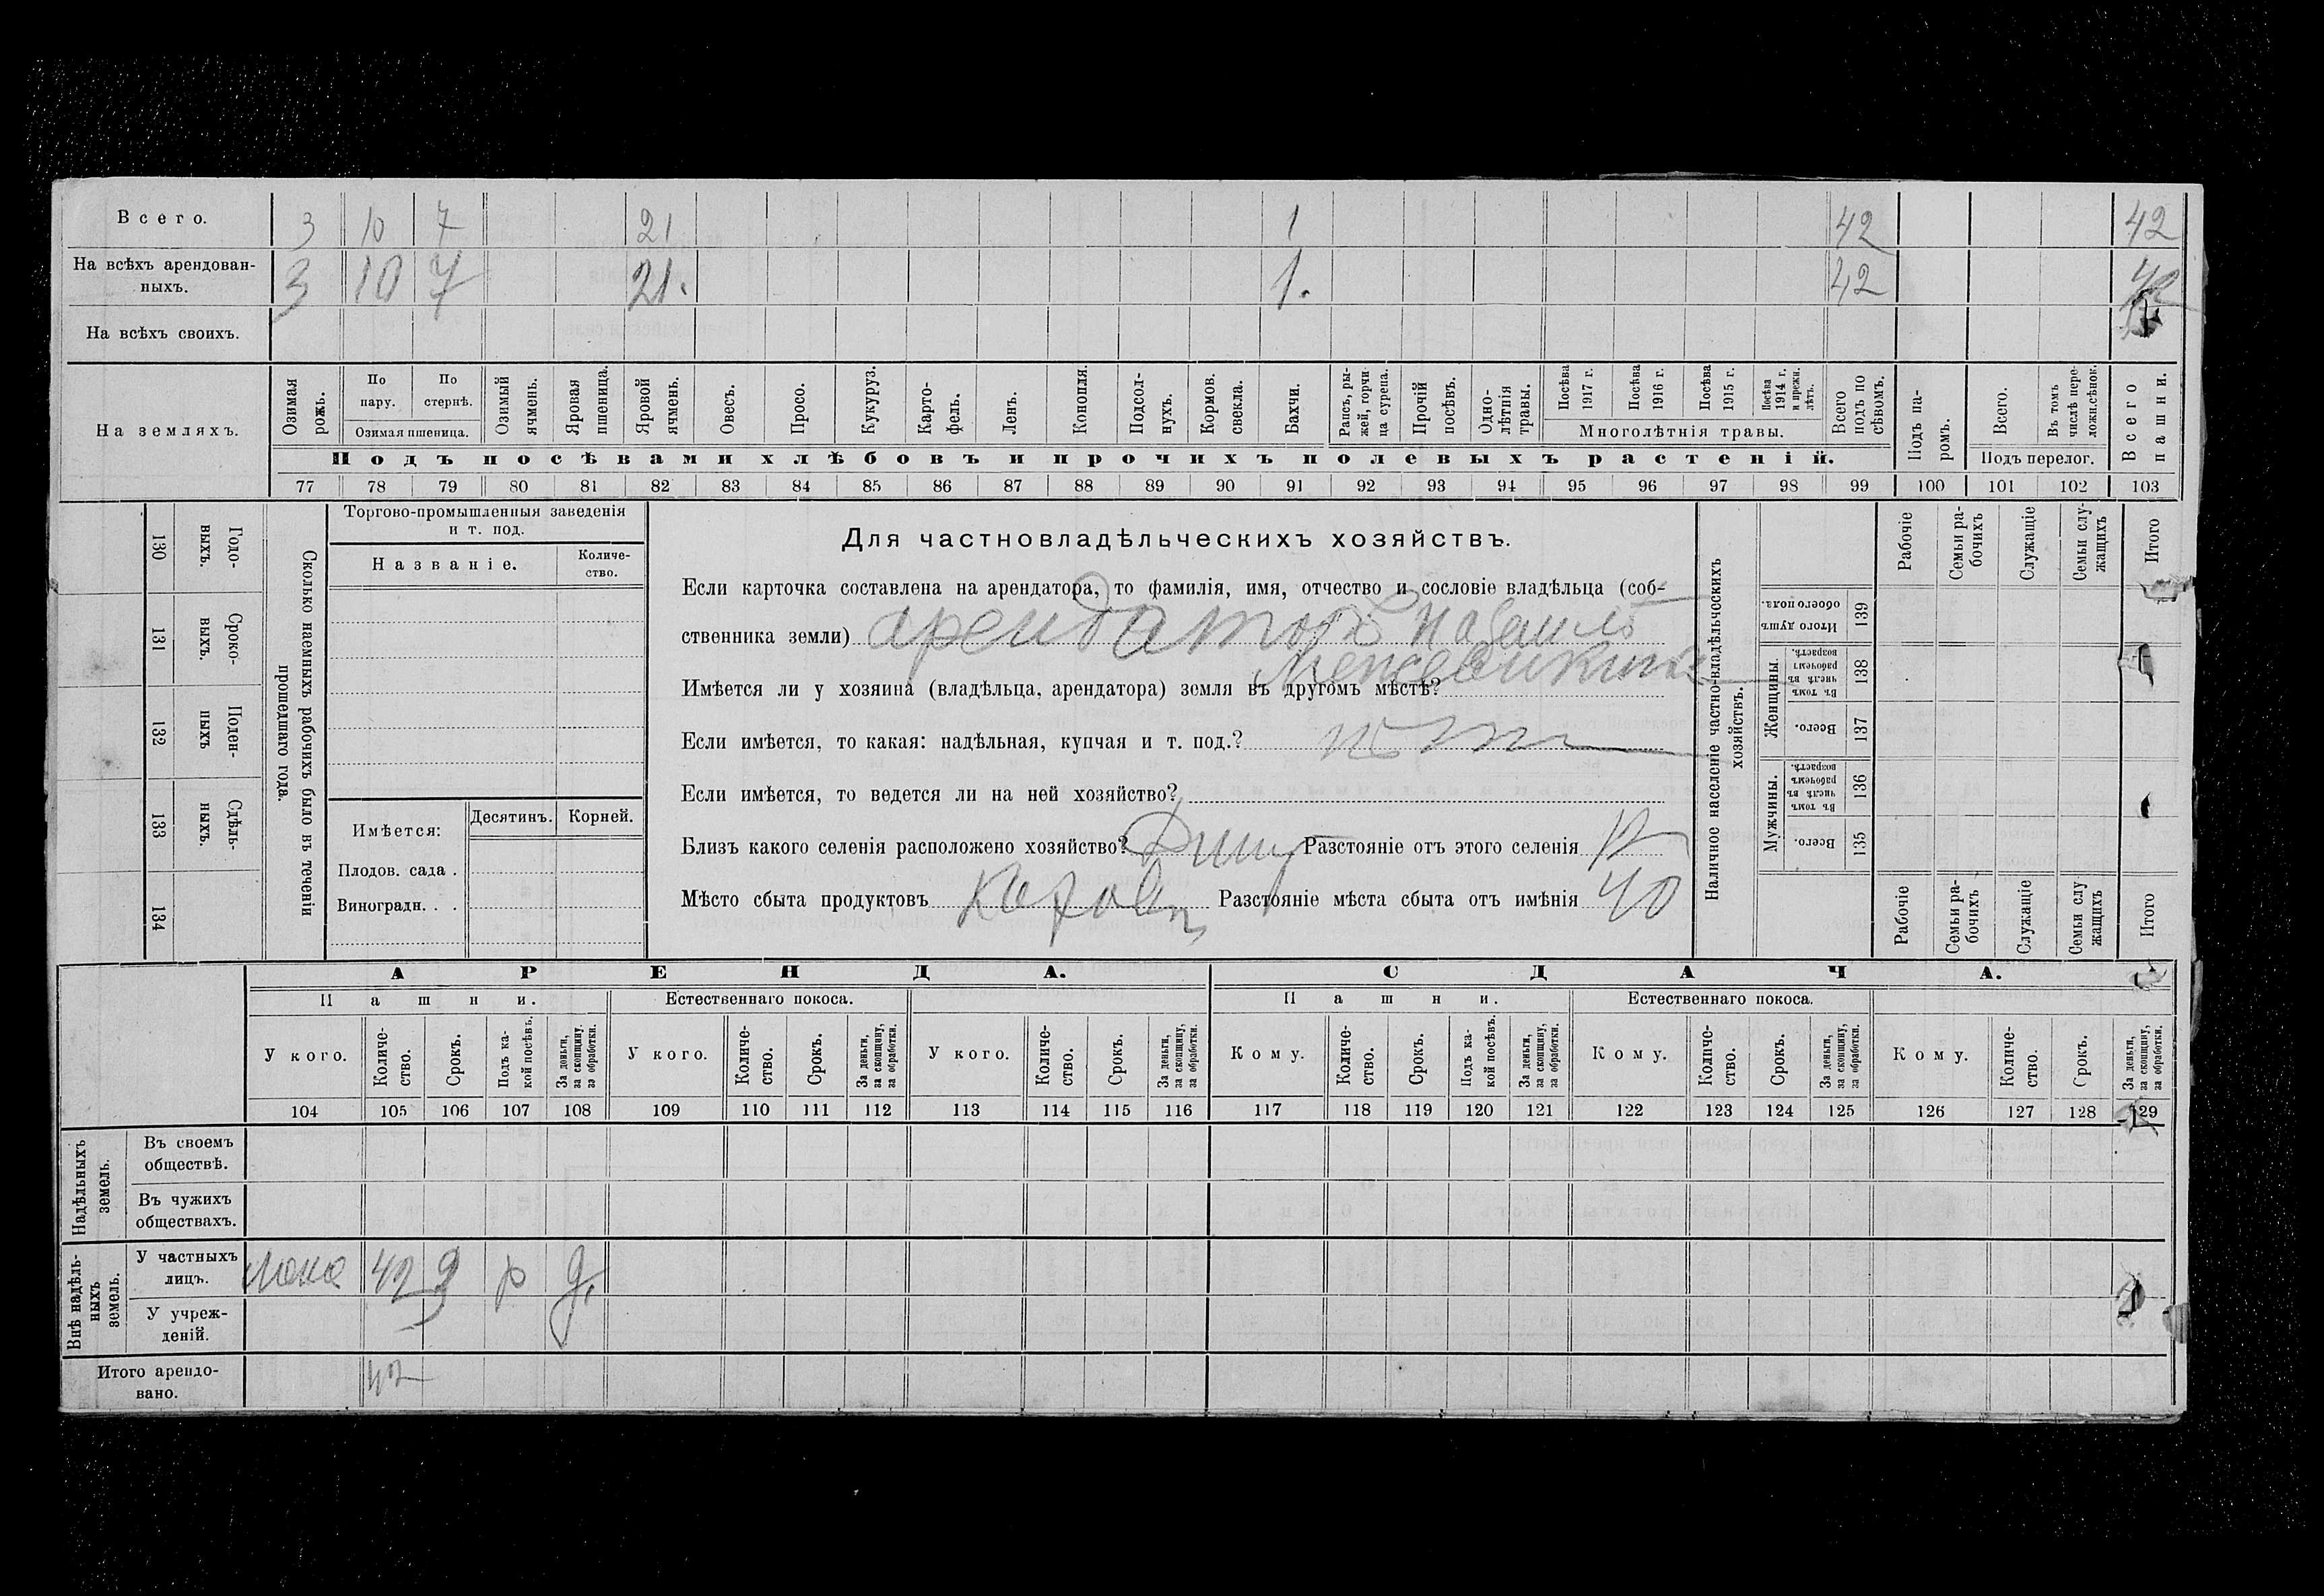 Всего. 3 10 7 21 1 42 42
На всѣхъ арендован-
ныхъ. 3 10 7 21. 1. 42 42
На всѣхъ своихъ.
На земляхъ.
Озимая рожь.
По пару.
По стернѣ.
Озимая пшеница.
Озимый ячмень.
Яровая пшеница.
Яровой ячмень.
Овесъ.
Просо.
Кукуруз.
Карто-
фель.
Ленъ.
Конопля.
Подсол-
нухъ.
Кормов.
свекла.
Бахчи.
Рапсъ, ры-
жей, горчи-
ца сурепа.
Прочій
посѣвъ.
Одно-
лѣтнія
травы.
Посѣва 1917 г.
Посѣва 1916 г.
Посѣва 1915 г.
Посѣва 1914 г. и прежн. лѣтъ.
Многолѣтнія травы.
Всего
подъ по
сѣвомъ.
Подъ посѣвами хлѣбовъ и прочихъ полевыхъ растеній.
Подъ па-
ромъ.
Всего.
Въ томъ
числѣ пере-
ложн.сѣнок.
Подъ перелог.
Всего
пашни.
77 78 79 80 81 82 83 84 85 86 87 88 89 90 91 92 93 94 95 96 97 98 99 100 101 102 103
130 Годо-
выхъ.
131 Сроко-
выхъ.
132 Поден-
ныхъ
133 Сдѣль-
ныхъ.
134
Сколько наемныхъ рабочихъ было въ теченіи
прошедшаго года.
Торгово-промышленныя заведенія
и т. под.
Названіе.
Количе-
ство.
Имѣется:
Десятинъ. Корней.
Плодов. сада .
Виноградн. . .
Для частновладѣльческихъ хозяйствъ.
Если карточка составлена на арендатора, то фамилія, имя, отчество и сословіе владѣльца (соб-
ственника земли) арендаторъ
Имѣется ли у хозяина (владѣльца, арендатора) земля въ другомъ мѣстѣ?
Если имѣется, то какая: надѣльная, купчая и т. под.? нѣтъ
Если имѣется, то ведется ли на ней хозяйство?
Близъ какого селенія расположено хозяйство? Разстояніе отъ этого селенія
Мѣсто сбыта продуктовъ Разстояніе мѣста сбыта отъ имѣнія 40
Наличное населеніе частно-владѣльческихъ
хозяйствъ.
Итого душъ
обоего пола. 139
Женщины.
Въ томъ
числѣ въ
рабочемъ
возрастѣ. 138
Всего. 137
Мужчины.
Въ томъ
числѣ въ
рабочемъ
возрастѣ. 136
Всего. 135
Рабочіе
Семьи ра-
бочихъ
Служащіе
Семьи слу-
жащихъ
Итого
Рабочіе
Семьи ра-
бочихъ
Служащіе
Семьи слу
жащихъ
Итого
АРЕНДА. СДАЧА.
Пашни. Естественнаго покоса. Пашни. Естественнаго покоса.
У кого.
Количе-
ство.
Срокъ.
Подъ ка-
кой посѣвъ.
За деньги,
за скопщину,
за обработки.
У кого.
Количе-
ство.
Срокъ.
За деньги,
за скопщину,
за обработки.
У кого.
Количе-
ство.
Срокъ.
За деньги,
за скопщину,
за обработки.
Кому.
Количе-
ство.
Срокъ.
Подъ ка-
кой посѣвъ.
За деньги,
за скопщину,
за обработки.
Кому.
Количе-
ство.
Срокъ.
За деньги,
за скопщину,
за обработки.
Кому.
Количе-
ство.
Срокъ.
За деньги,
за скопщину,
за обработки.
104 105 106 107 108 109 110 111 112 113 114 115 116 117 118 119 120 121 122 123 124 125 126 127 128 129
Надѣльныхъ
земель.
Въ своемъ
обществѣ.
Въ чужихъ
обществахъ.
Внѣ надѣль-
ныхъ
земель.
У частныхъ
лицъ. 42 9 р д.
У учреж-
деній.
Итого арендо-
вано. 42